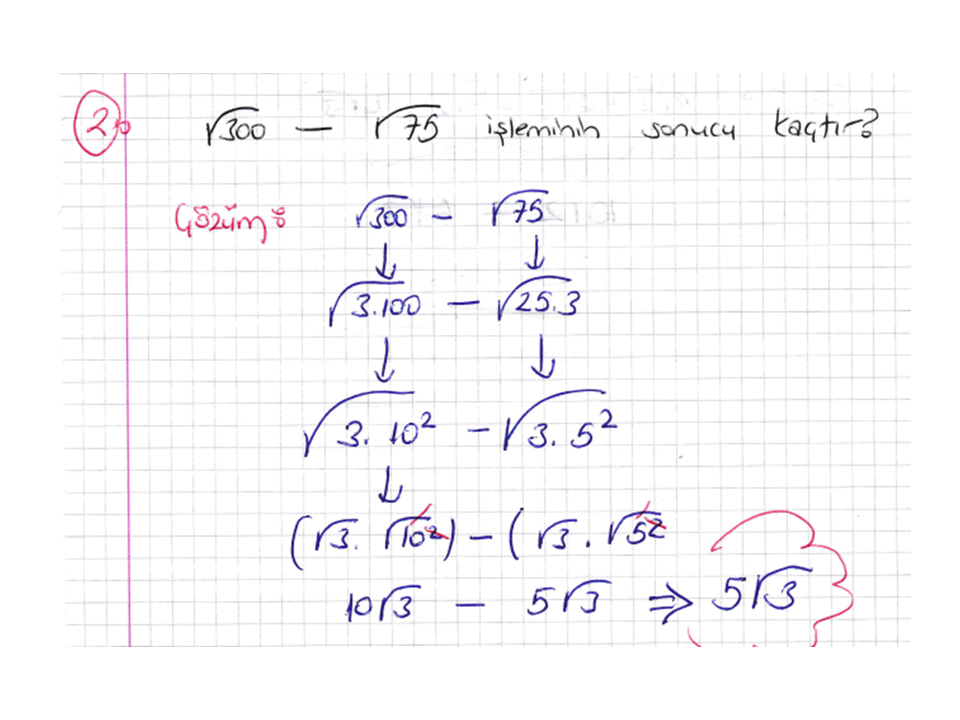 2. √300 – √75 işleminin sonucu kaçtır?
Çözüm: √300 – √75
↓ ↓
√3.100 – √25.3
↓ ↓
√3.10² – √3.5²
↓
(√3.√10²) – (√3.√5²
10√3 – 5√3 ⇒ 5√3